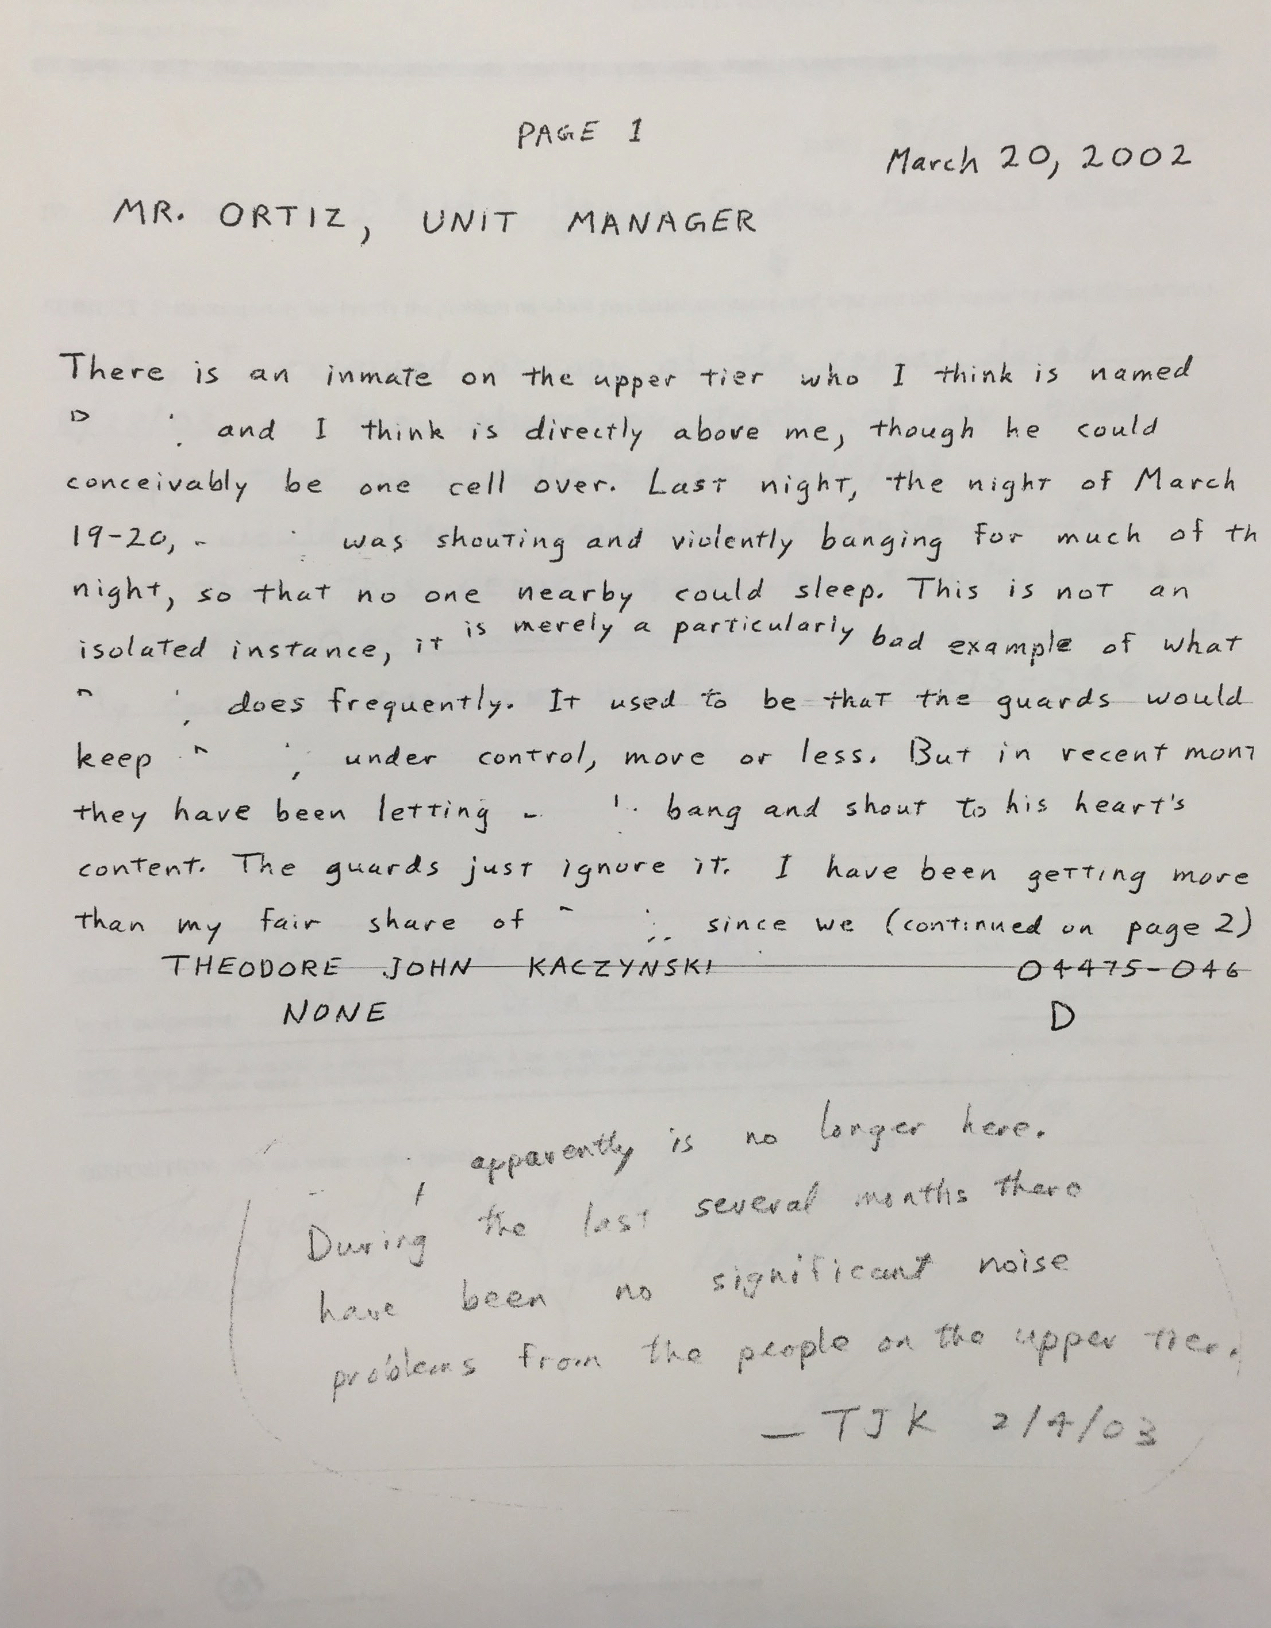 PAGE 1
March 20, 2002
MR. ORTIZ, UNIT MANAGER
There is an inmate on the upper tier who I think is named
and I think is directly above me, though he could
conceivably be one cell over. Last night, the night of March
19-20, was shouting and violently banging for much of th
night, so that no one nearby could sleep. This is not an
isolated instance, it is merely a particularly bad example of what
does frequently. It used to be that the guards would
keep under control, more or less. But in recent mont
they have been letting bang and shout to his heart's
content. The guards just ignore it. I have been getting more
than my fair share of since we (continued on page 2)
THEODORE JOHN KACZYNSKI 04475-046
NONE D
apparently is no longer here.
During the last several months there
have been no significant noise
problems from the people on the upper tier.
— TJK 2/4/03